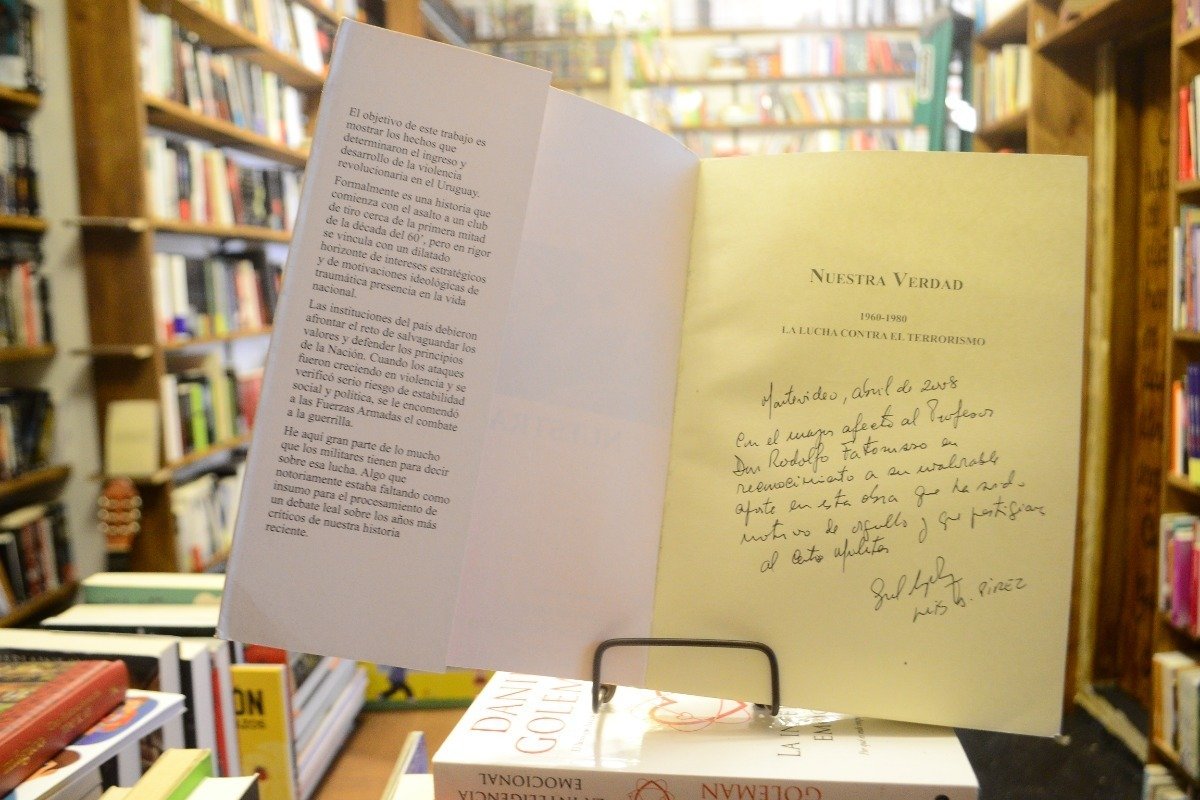 El objetivo de este trabajo es
mostrar los hechos que
determinaron el ingreso y
desarrollo de la violencia
revolucionaria en el Uruguay.
Formalmente es una historia que
comienza con el asalto a un club
de tiro cerca de la primera mitad
de la década del 60', pero en rigor
se vincula con un dilatado
horizonte de intereses estratégicos
y de motivaciones ideológicas de
traumática presencia en la vida
nacional.
Las instituciones del país debieron
afrontar el reto de salvaguardar los
valores y defender los principios
de la Nación. Cuando los ataques
fueron creciendo en violencia y se
verificó serio riesgo de estabilidad
social y política, se le encomendó
a las Fuerzas Armadas el combate
a la guerrilla.
He aquí gran parte de lo mucho
que los militares tienen para decir
sobre esa lucha. Algo que
notoriamente estaba faltando como
insumo para el procesamiento de
un debate leal sobre los años más
críticos de nuestra historia
reciente.
NUESTRA VERDAD
1960-1980
LA LUCHA CONTRA EL TERRORISMO
Montevideo, abril de 2008
Con el mayor afecto al Profesor
Don Rodolfo Fattoruso en
reconocimiento a su invalorable
aporte en esta obra que ha sido
motivo de orgullo y que prestigia
al Centro
LUIS PIREZ
GOLEMAN
LA INTELIGENCIA
EMOCIONAL
GOLEMAN